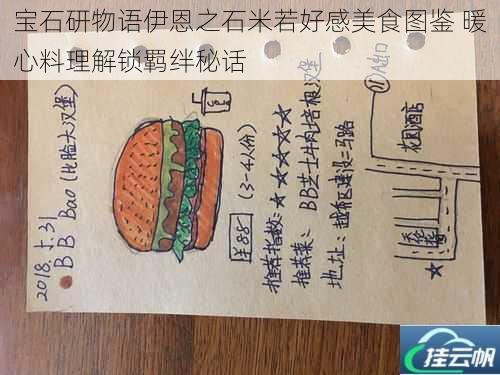 宝石研物语伊恩之石米若好感美食图鉴 暖
心料理解锁羁绊秘话
2018.5.31
BB Bao(比脸大汉堡)
¥88 (3-4人份)
推荐指数:★★★★★
推荐菜:BB芝士牛肉培根汉堡
地址:越秀区建设二马路
花园酒店
挂云帆